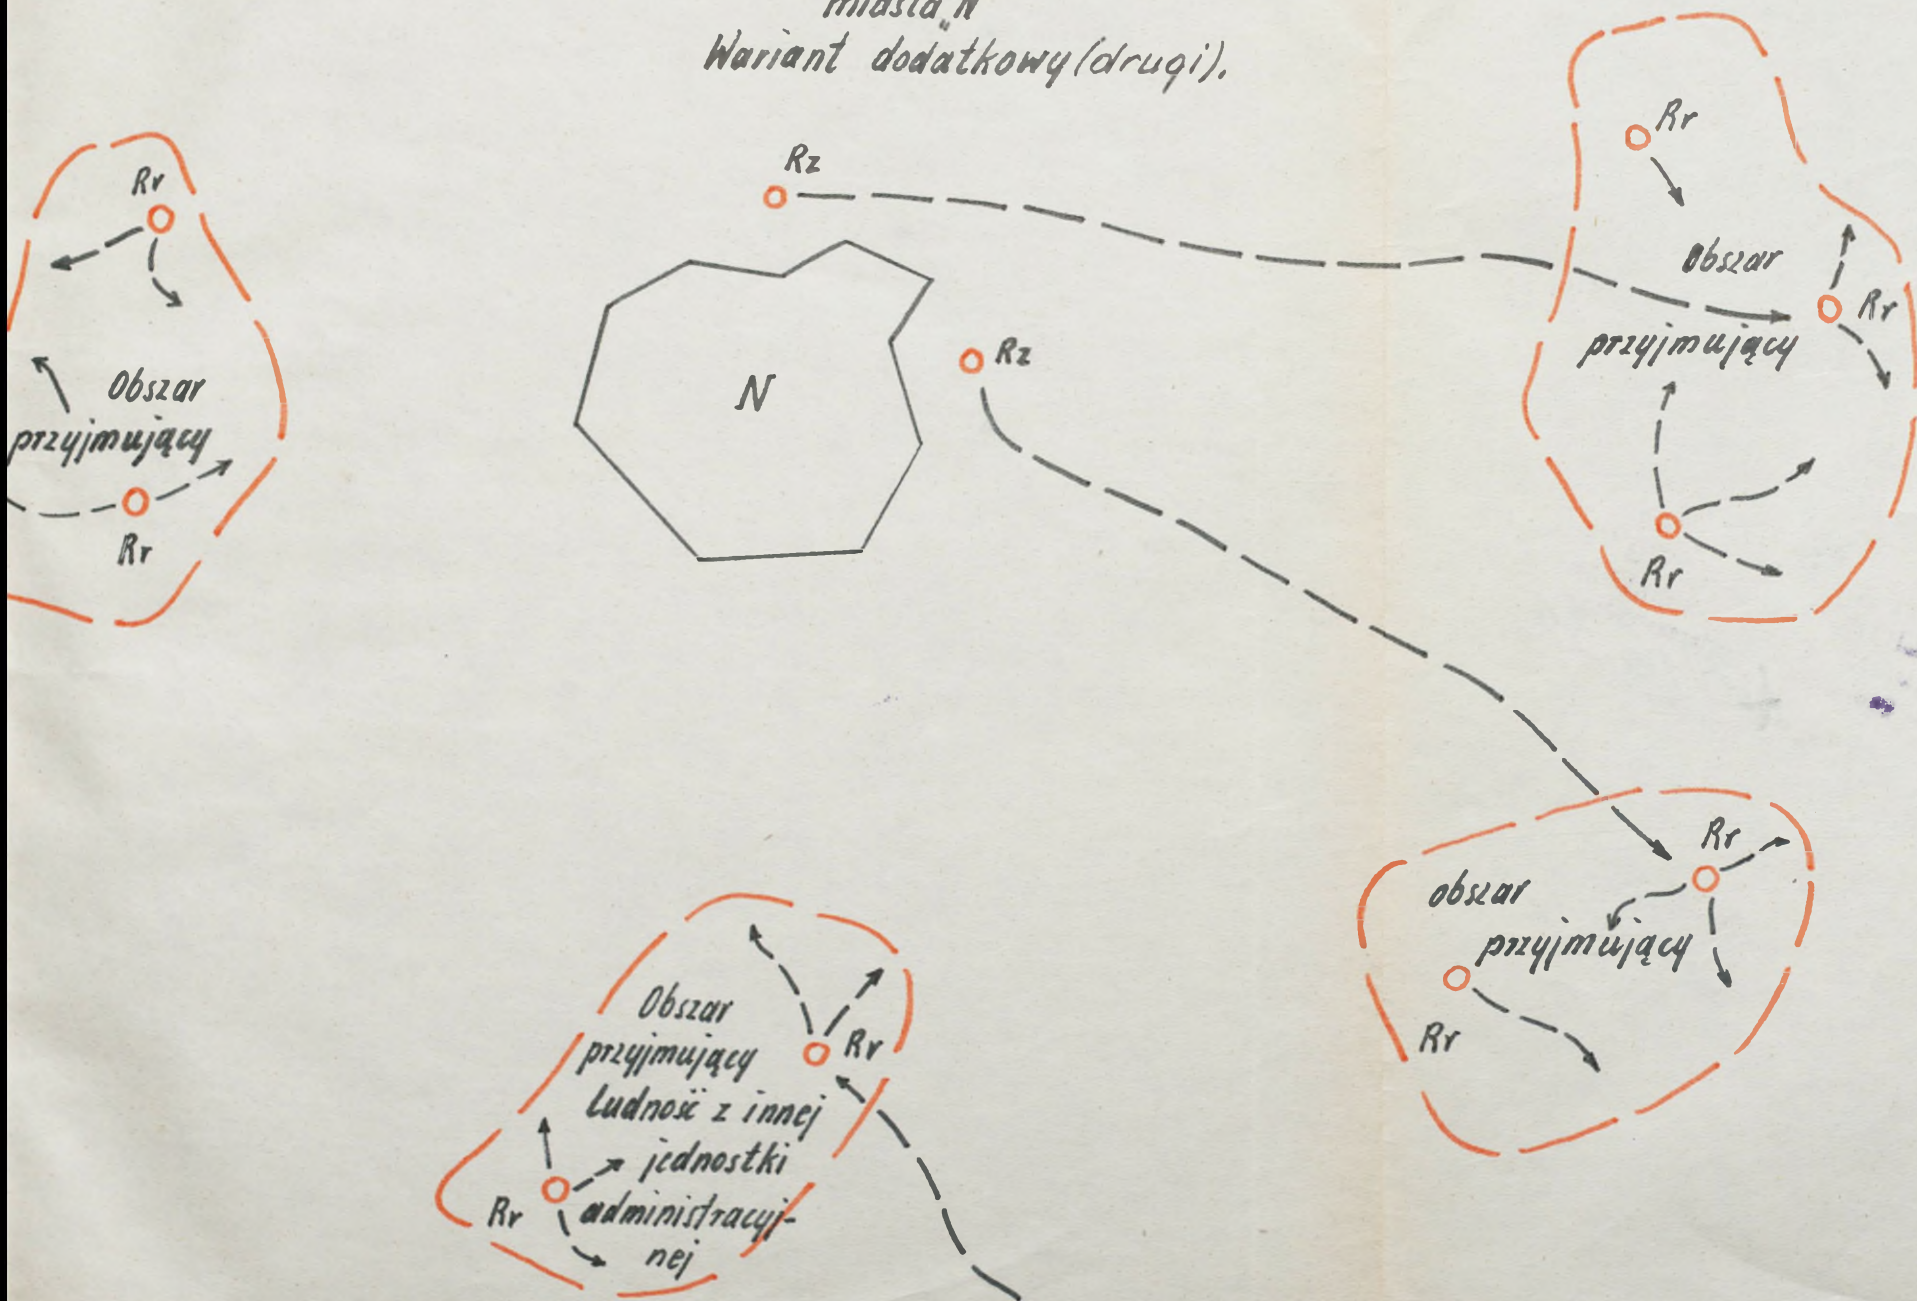 miasta „N"
Wariant dodatkowy (drugi).
Rr
Obszar
przyjmujący
Rr
Rz
N
Rz
Rr
Obszar
Rr
przyjmujący
Rr
Rr
obszar
przyjmujący
Rr
Obszar
przyjmujący
Rr
ludność z innej
jednostki
Rr
administracyj-
nej